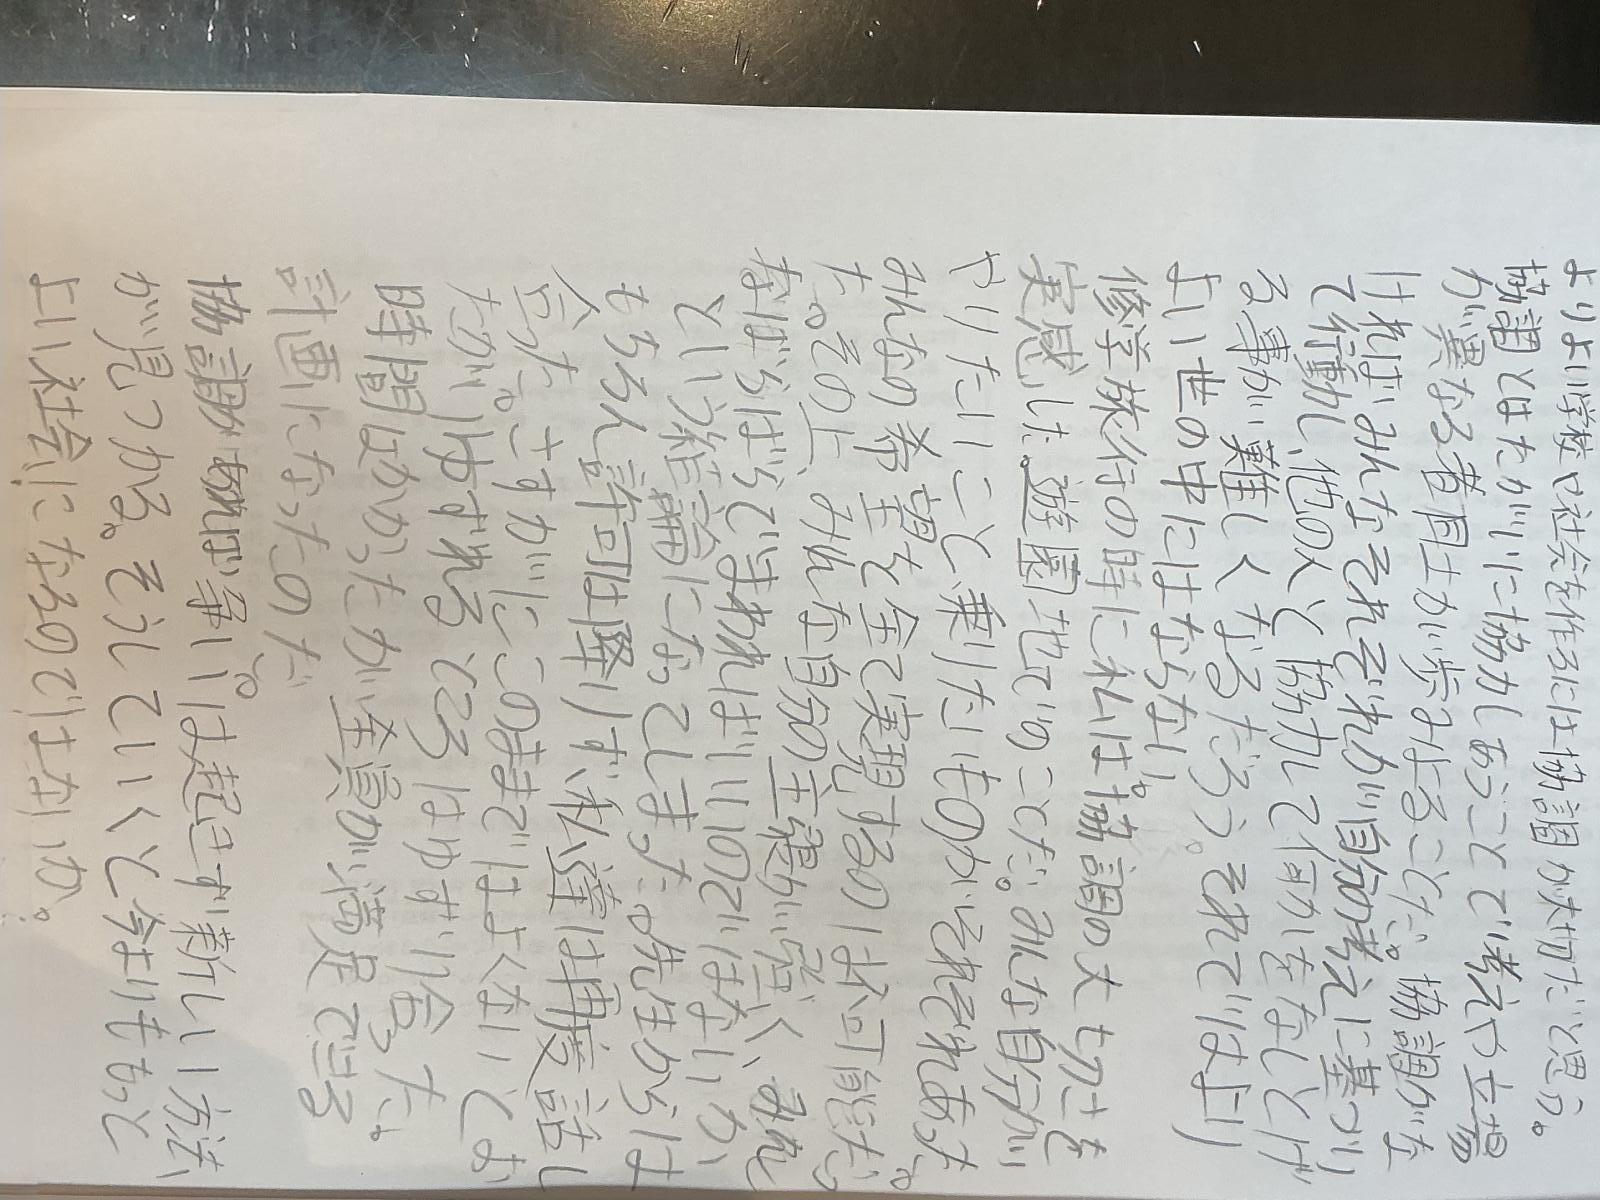 よりよい学校や社会を作るには協調が大切だと思う。
協調とはたがいに協力しあうことで考えや立場
が異なる者同士が歩みよることだ。協調がな
ければみんなそれぞれが自分の考えに基づい
て行動し他の人と協力して何かをなしとげ
る事が難しくなるだろう。それではより
よい世の中にはならない。
修学旅行の時にわれは協調の大切さを
実感した。遊園地でのことだ。みな自分が
やりたいこと、乗りたいものがそれぞれあった。
みんなの希望を全て実現するのは不可能だっ
た。その上、みんな自分の主張が強く、みれ
なばらばらでまわればいいのではないか
という結論になってしまった。が先生からは
もちろん許可は降りず私達は再度話し
合った。さすがにこのままではよくないとお
たがいゆずれるところはゆずり合った。
時間はかかったが全員が満足できる
計画になったのだ
協調があれば争いは起こさず新しい方法
が見つかる。そうしていくと今よりもっと
よい社会になるのではないか。